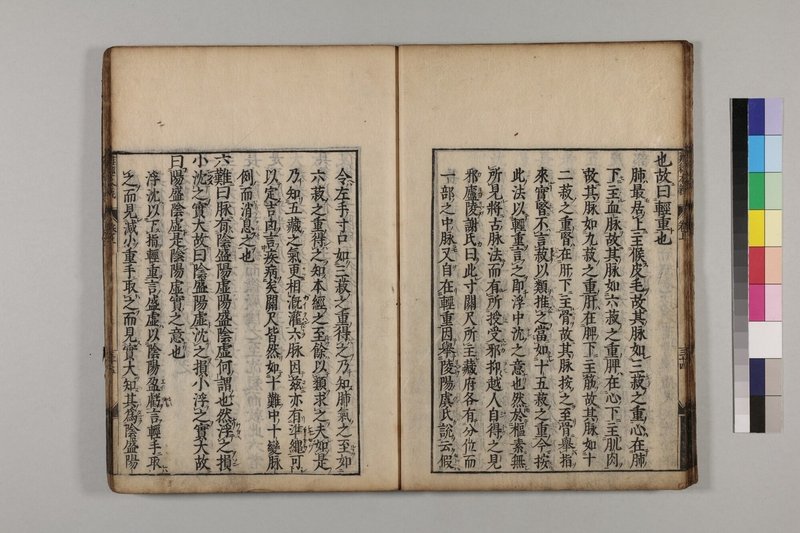 也故曰輕重也
肺最居上主候皮毛故其脉如三菽之重心在肺
下主血脉故其脉如六菽之重脾在心下主肌肉
故其脉如九菽之重肝在脾下主筋故其脉如十
二菽之重腎在肝下主骨故其脉按之至骨擧指
來實腎不言菽以類推之當如十五菽之重今按
此法以輕重言之即浮中沈之意也然於樞素無
所見將古脉法而有所授受邪抑越人自得之見
邪廬陵謝氏曰此寸關尺所主藏府各有分位而
一部之中脉又自在輕重因擧陵陽虞氏說云假
令左手寸口如三菽之重得之乃知肺氣之至如
六菽之重得之知本經之至餘以類求之夫如是
乃知五藏之氣更相溉灌六脉因茲亦有準繩可
以定吉凶言疾病矣關尺皆然如十難中十變脉
例而消息之也
六難曰脉有陰盛陽虛陽盛陰虛何謂也然浮之損
小沈之實大故曰陰盛陽虛沈之損小浮之實大故
曰陽盛陰虛是陰陽虛實之意也
浮沈以下指輕重言盛虛以陰陽盈虧言輕手取
之而見減小重手取之而見實大知其爲陰盛陽